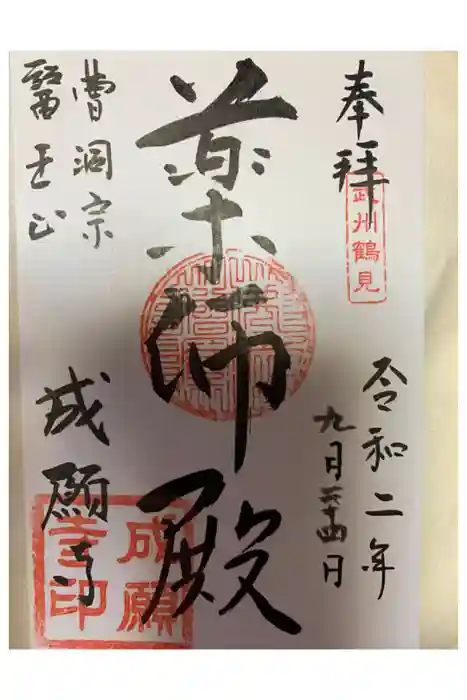 奉拝
武州鶴見
令和二年
九月二十四日
薬師殿
曹洞宗
醫王山
成願寺
成願
寺印